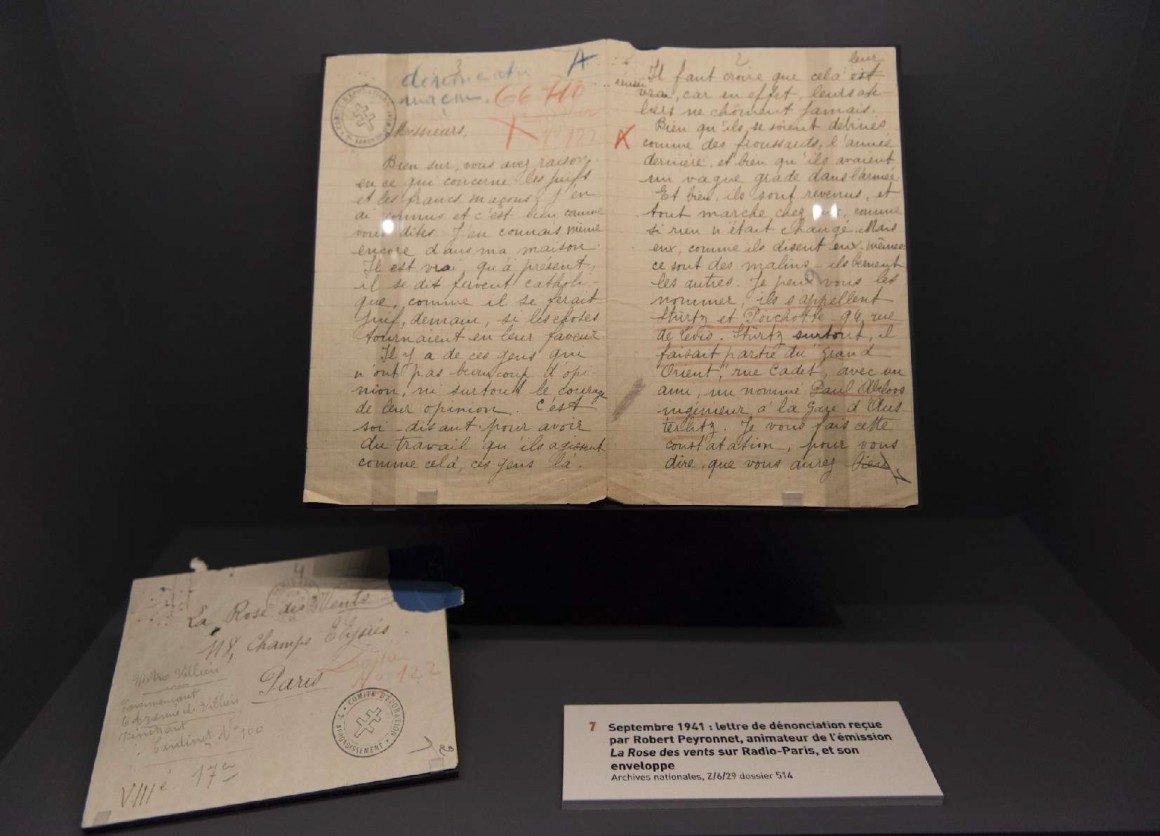 3
dénonciation
maçon.
A
66 710
N° 122
Messieurs,
Bien sur, vous avez raison
en ce qui concerne les juifs
et les francs maçons. J'en
ai connus et c'est bien comme
vous dites. J'en connais même
encore dans ma maison.
Il est vrai qu'à présent,
il se dit fervent catholi-
que, comme il se ferait
juif, demain, si les choses
tournaient en leur faveur.
Il y a de ces gens qui
n'ont pas beaucoup d'opi
nion, ni surtout le courage
de leur opinion. C'est
soi-disant pour avoir
du travail qu'ils agissent
comme celà, ces gens là.
2
leur
Il faut croire que celà est
vrai, car en effet, leurs ate-
liers ne chôment jamais.
Bien qu'ils se soient debinés
comme des froussards, l'année
dernière, et bien qu'ils avaient
un vague grade dans l'armée.
Et bien, ils sont revenus, et
tout marche chez eux, comme
si rien n'était changé. Mais
eux, comme ils disent eux-mêmes
ce sont des malins - ils
les autres. Je peux vous les
nommer, ils s'appellent
Stürtz et 94, rue
de Lévis. Stürtz surtout, il
faisait partie du "Grand
Orient", rue Cadet, avec un
ami, un nommé Paul
ingénieur, à la Gare d'Aus
terlitz. Je vous fais cette
constatation, pour vous
dire, que vous aurez bien
4
La Rose des Vents
118, Champs Elysées
Paris
N° 122
Métro Villiers
Commençant
Cardinet N° 100
VIIIe 17e
COMITÉ D'ÉPURATION
ARRONDISSEMENT
RB
7 Septembre 1941 : lettre de dénonciation reçue
par Robert Peyronnet, animateur de l'émission
La Rose des vents sur Radio-Paris, et son
enveloppe
Archives nationales, Z/6/29 dossier 514